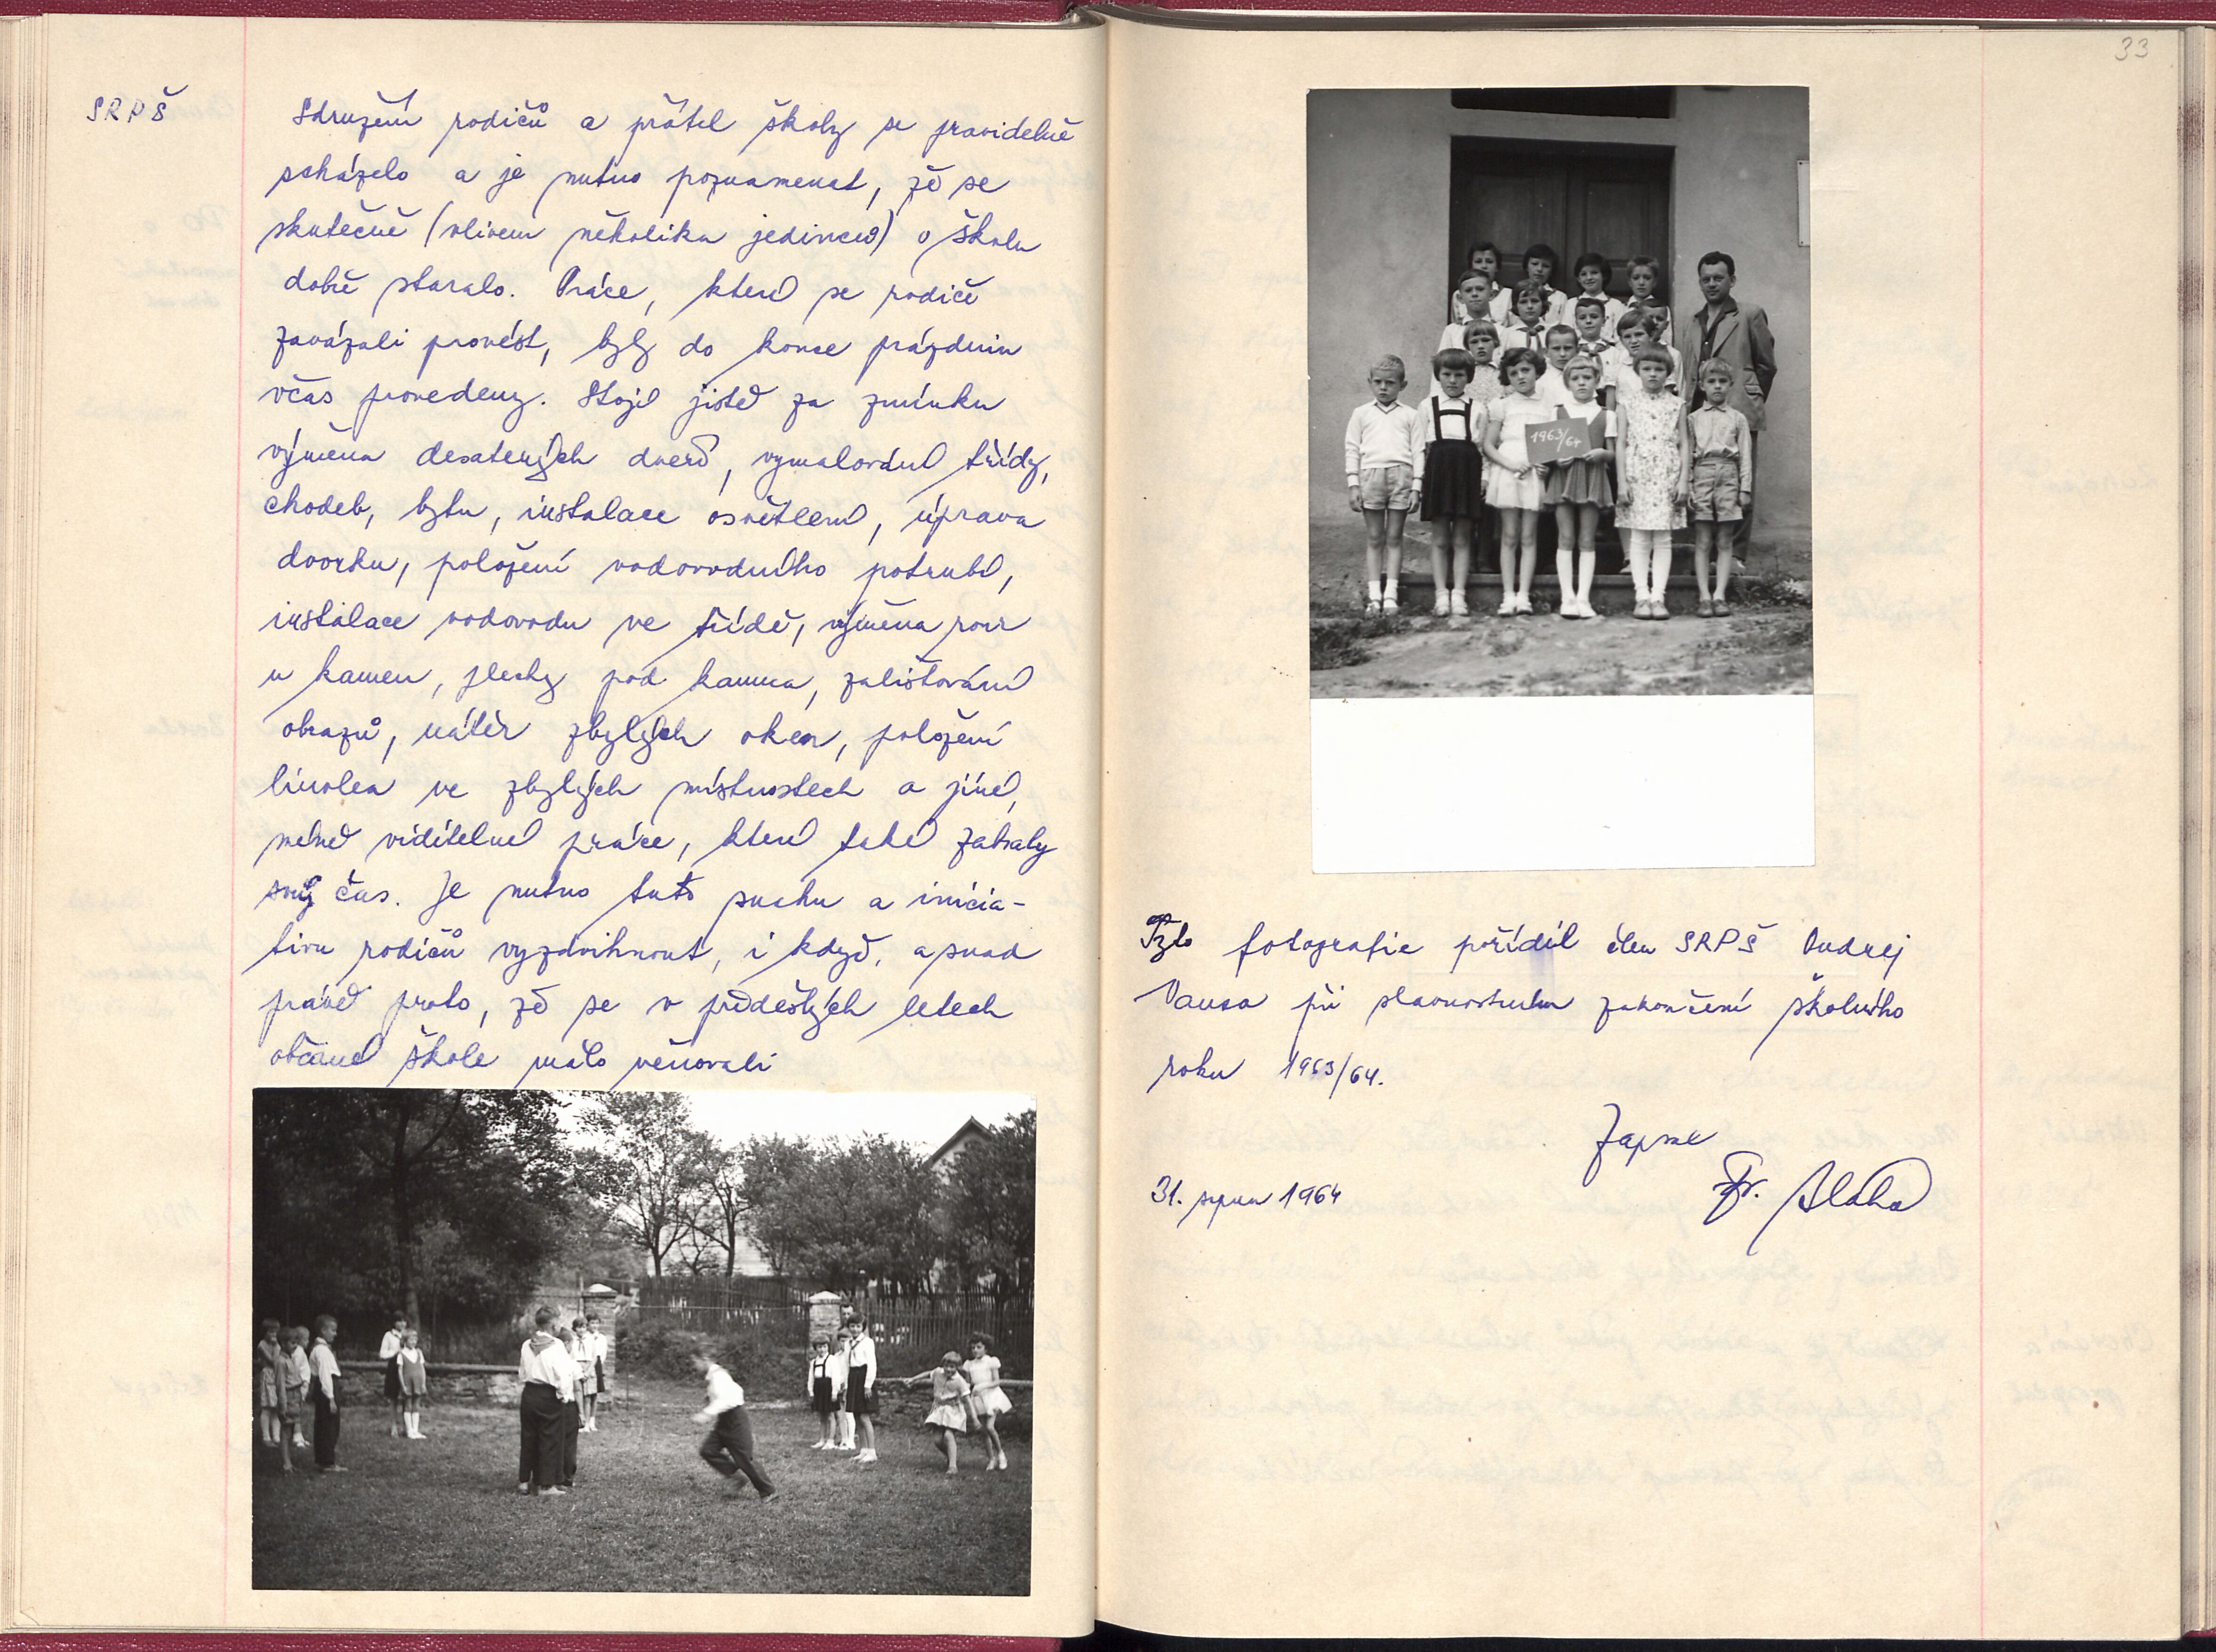 SRPŠ
Sdružení rodičů a přátel školy se pravidelně
scházelo a je nutno poznamenat, že se
skutečně (vlivem několika jedinců) o školu
dobře staralo. Práce, které se rodiče
zavázali provést, byly do konce prázdnin
včas provedeny. Stojí jistě za zmínku
výměna desatených dveří, vymalování třídy,
chodeb, bytu, instalace osvětlení, úprava
dvorku, položení vodovodního potrubí,
instalace vodovodu ve třídě, výměna rour
u kamen, plechy pod kamna, zalištování
obrazů, nátěr zbylých oken, položení
linolea ve zbylých místnostech a jiné,
méně viditelné práce, které také zabraly
svůj čas. Je nutno tuto snahu a inicia-
tivu rodičů vyzdvihnout, i když, a snad
právě proto, že se v předešlých letech
občané škole málo věnovali
33
1963/64
Tyto fotografie pořídil člen SRPŠ Ondrej
Vansa při slavnostním zakončení školního
roku 1963/64.
Zapsal
31. srpna 1964
Fr. Bláha